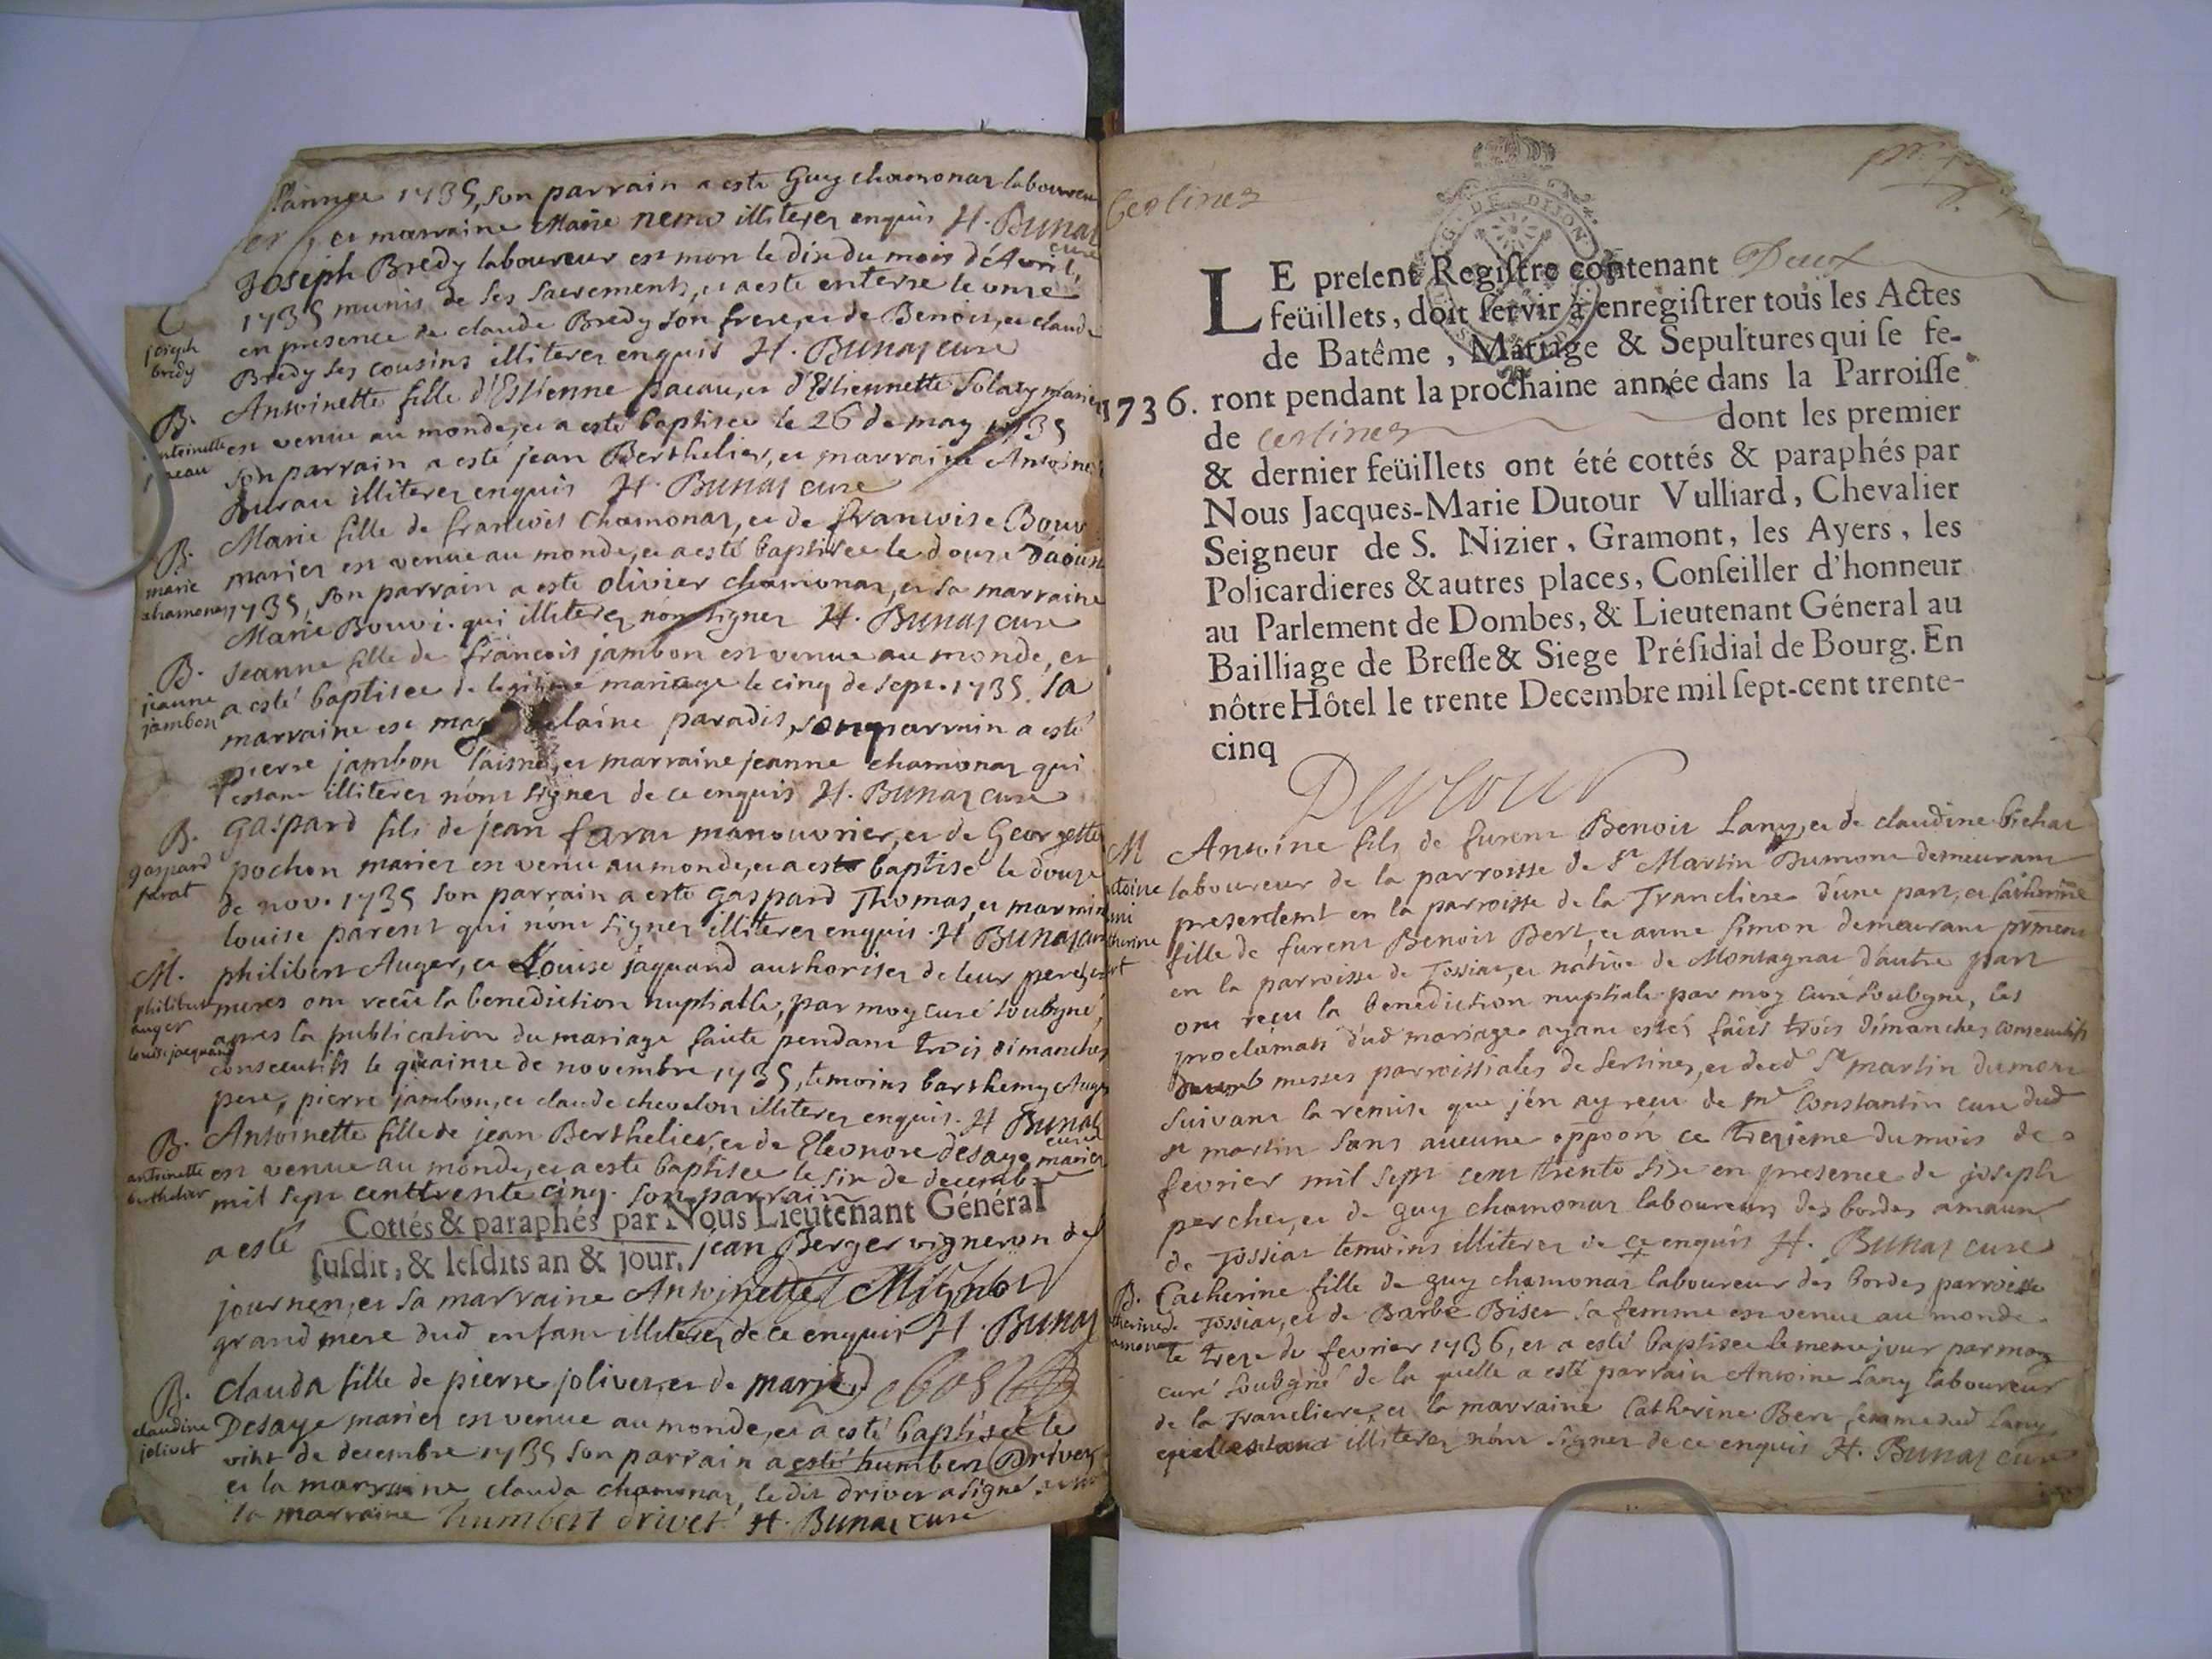 l'année 1735, son parrain a esté Guy chamonar laboureu
et marraine Marie nemo illiteres enquis H. Bunaz
curé
Joseph Bredy laboureur est mort le dix du mois d'Avril,
1735 munis de ses sacrements, et a esté enterré le onze
en presence de claude Bredy son frere, et de Benoit, et claude
Bredy ses cousins illiteres enquis H. Bunaz curé
joseph
bredy
B. Antoinette fille d'Estienne pacau, et d'Estiennette Solary mariez
est venue au monde, et a esté baptisee le 26 de may 1735
son parrain a esté jean Berthelier, et marraine Antoine
illiteres enquis H. Bunaz curé
B. Marie fille de francois chamonar, et de francoise Bouv
mariez est venue au monde, et a esté baptisee le douze d'aoust
1735, son parrain a esté olivier chamonar, et sa marraine
Marie Bouvi. qui illiteres n'ont signez H. Bunaz curé
marie
chamonar
B. Jeanne fille de francois jambon est venue au monde, et
a esté baptisee de legitime mariage le cinq de sept. 1735. Sa
marraine est paradis, son parrain a esté
pierre jambon l'aisné, et marraine jeanne chamonar qui
estant illiteres n'ont signez de ce enquis H. Bunaz curé
jeanne
jambon
B. Gaspard fils de jean farat manouvrier, et de Georgette
pochon mariez est venu au monde, et a esté baptisé le douze
de nov. 1735 son parrain a esté gaspard Thomas, et marraine
louise parent qui n'ont signez illiteres enquis. H Bunaz curé
gaspard
farat
M. philibert Auger, et Louise jaquand authorisez de leur peres, et
meres ont reçu la benediction nuptialle, par moy curé soubsigné,
apres la publication du mariage faite pendant trois dimanches
consecutifs le quainse de novembre 1735, temoins barthemy Auger
pere, pierre jambon, et claude chevalon illiteres enquis. H Bunaz
curé
philibert
auger
louise jacquand
B. Antoinette fille de jean Berthelier, et de Eleonore desaye mariez
est venue au monde, et a esté baptisee le six de decembre
mil sept cent trente cinq. son parrain
antoinette
berthelier
Cottés & paraphés par Nous Lieutenant Général
a esté
susdit, & lesdits an & jour. jean Berger vigneron de
journen, et sa marraine Antoinette Mignon
grand mere dud enfant illiteres de ce enquis H. Bunaz
B. Clauda fille de pierre jolivet, et de marie
Desaye mariez est venue au monde, et a esté baptisée le
vint de decembre 1735 son parrain a esté humbert Drivet
et la marraine clauda chamonar, le dit drivet a signé
la marraine humbert drivet H. Bunaz curé
claudine
jolivet
Certines
LE present Registre contenant Deux
feüillets, doit servir à enregistrer tous les Actes
de Batême, Mariage & Sepultures qui se fe-
1736. ront pendant la prochaine année dans la Parroisse
de certines dont les premier
& dernier feüillets ont été cottés & paraphés par
Nous Jacques-Marie Dutour Vulliard, Chevalier
Seigneur de S. Nizier, Gramont, les Ayers, les
Policardieres & autres places, Conseiller d'honneur
au Parlement de Dombes, & Lieutenant Géneral au
Bailliage de Bresse & Siege Présidial de Bourg. En
nôtre Hôtel le trente Decembre mil sept-cent trente-
cinq
Dutour
M Antoine fils de furent Benoit Lany, et de claudine bichat
laboureur de la parroisse de St Martin Dumont demeurant
presentemt en la parroisse de la Trancliere d'une part, et Catherine
fille de furent Benoit Bert, et anne Simon demeurant prntment
en la parroisse de Tossiat, et native de Montagnat d'autre part
ont reçu la benediction nuptiale par moy curé soubsigné, les
proclamats dud mariage ayant estés faits trois dimanches consecutifs
messes parroissiales de Sertines, et dud St martin dumont
suivant la remise que j'en ay reçu de mr Constantin curé dud
st martin sans aucune oppoõn ce treizieme du mois de
fevrier mil sept cent trente six en presence de joseph
perchet, et de guy chamonar laboureurs des bordes amaun
de Tossiat temoins illiteres de ce enquis H. Bunaz curé
B. Catherine fille de guy chamonar laboureur des bordes parroisse
de Tossiat, et de Barbe Biset sa femme est venue au monde
le treze de fevrier 1736, et a esté baptisee le meme jour par moy
curé soubsigné de la quelle a esté parrain Antoine Lany laboureur
de la Trancliere, et la marraine Catherine Bert femme dud Lany
illiteres n'ont signez de ce enquis H. Bunaz curé